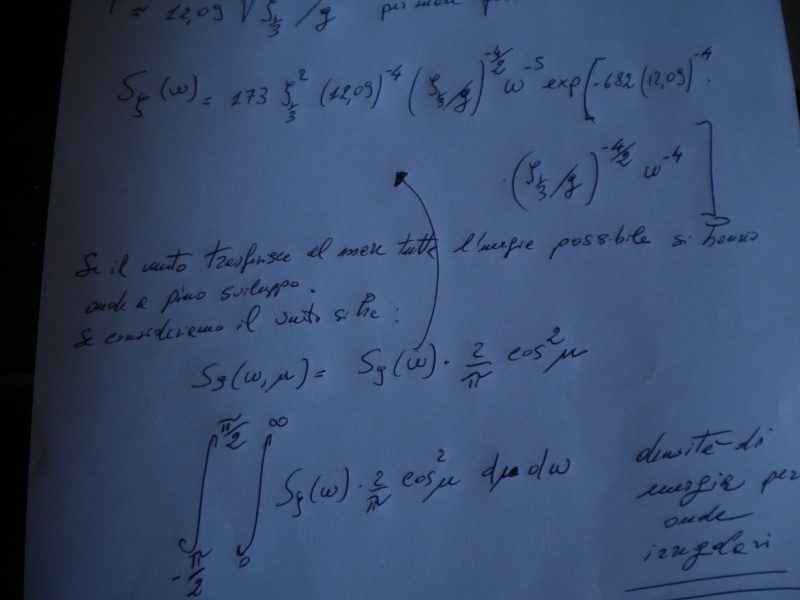 ≈ 12,09 √ζ⅓/g per mare
Sζ(ω) = 173 ζ⅓² (12,09)⁻⁴ (ζ⅓/g)^(-4/2) ω⁻⁵ exp[-682 (12,09)⁻⁴ ·
· (ζ⅓/g)^(-4/2) ω⁻⁴ ]
Se il vento trasferisce al mare tutta l'energia possibile si hanno
onde a pieno sviluppo.
Se consideriamo il vento si ha :
Sζ(ω,μ) = Sζ(ω) · 2/π cos²μ
∫_{-π/2}^{π/2} ∫_0^∞ Sζ(ω) · 2/π cos²μ dμ dω
densità di
energia per
onde
irregolari